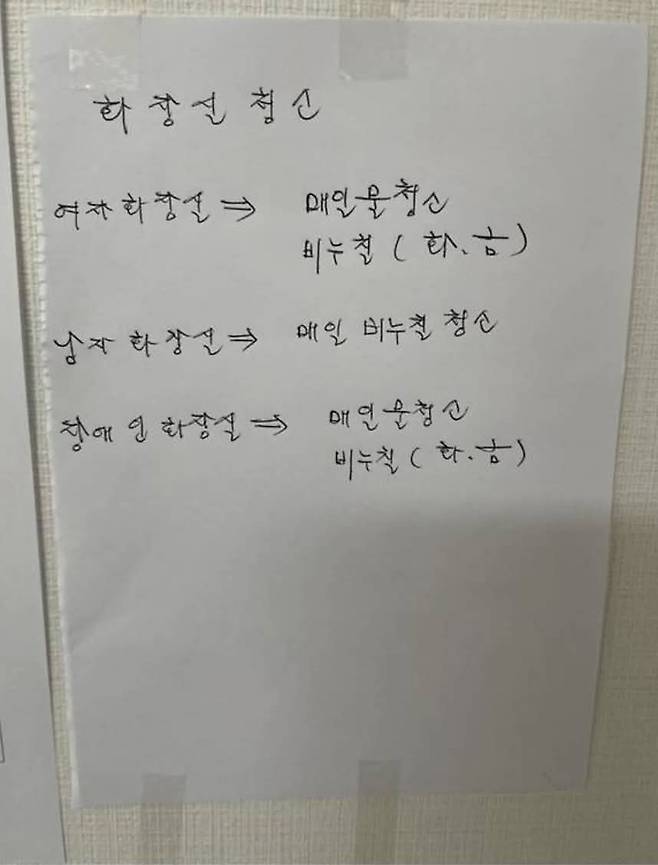 화장실 청소
여자화장실 ⇒ 매일물청소
비누칠 (화.금)
남자화장실 ⇒ 매일 비누칠 청소
장애인화장실 ⇒ 매일물청소
비누칠 (화.금)